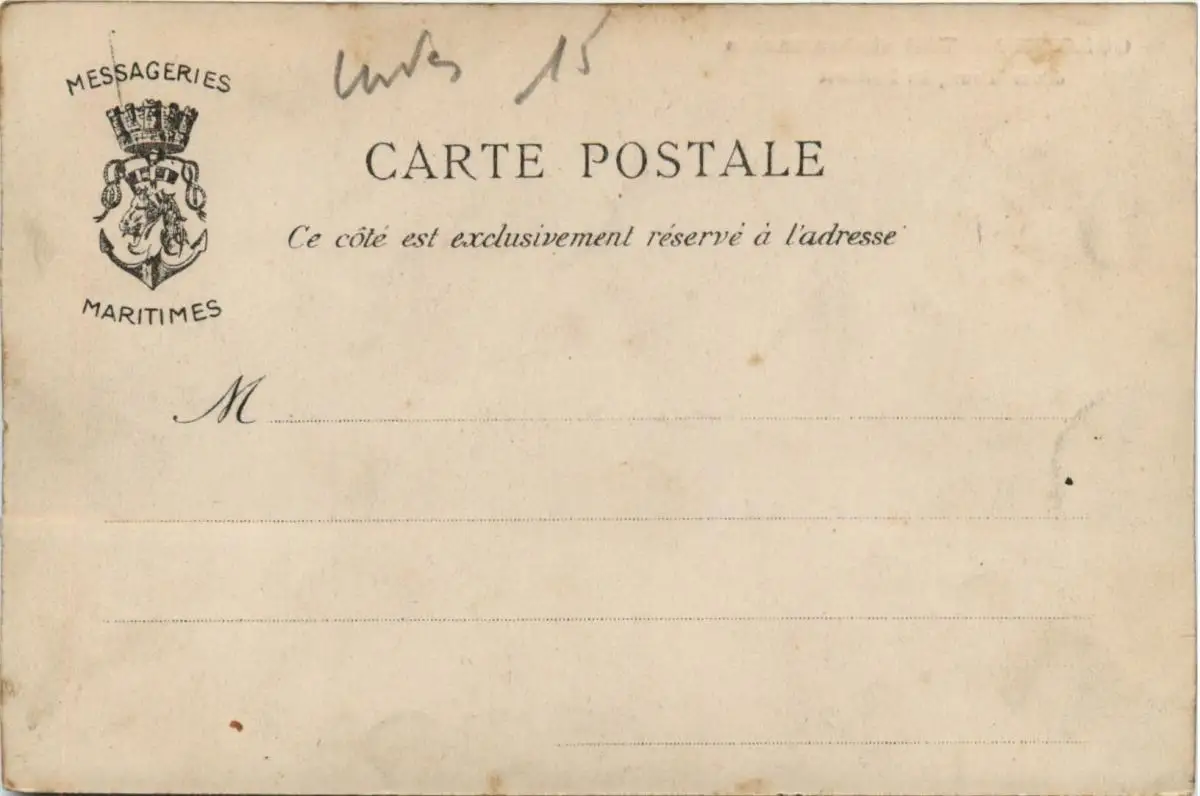 MESSAGERIES
MARITIMES
Indes 15
CARTE POSTALE
Ce côté est exclusivement réservé à l'adresse
M